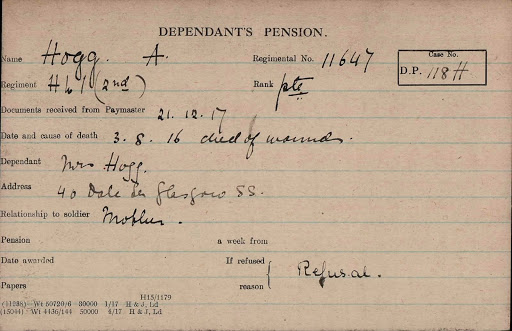 DEPENDANT'S PENSION.
Name Hogg. A. Regimental No. 11647
Case No.
D.P. 118H
Regiment HLI (2nd) Rank pte
Documents received from Paymaster 21.12.17
Date and cause of death 3. 8. 16 died of wounds.
Dependant Mrs Hogg.
Address 40 Dale St Glasgow SS.
Relationship to soldier Mother.
Pension a week from
Date awarded If refused
reason Refusal.
Papers
H15/1179
(11235) Wt 50729/6 30000 1/17 H & J, Ld
(15044) Wt 4136/144 50000 4/17 H & J, Ld